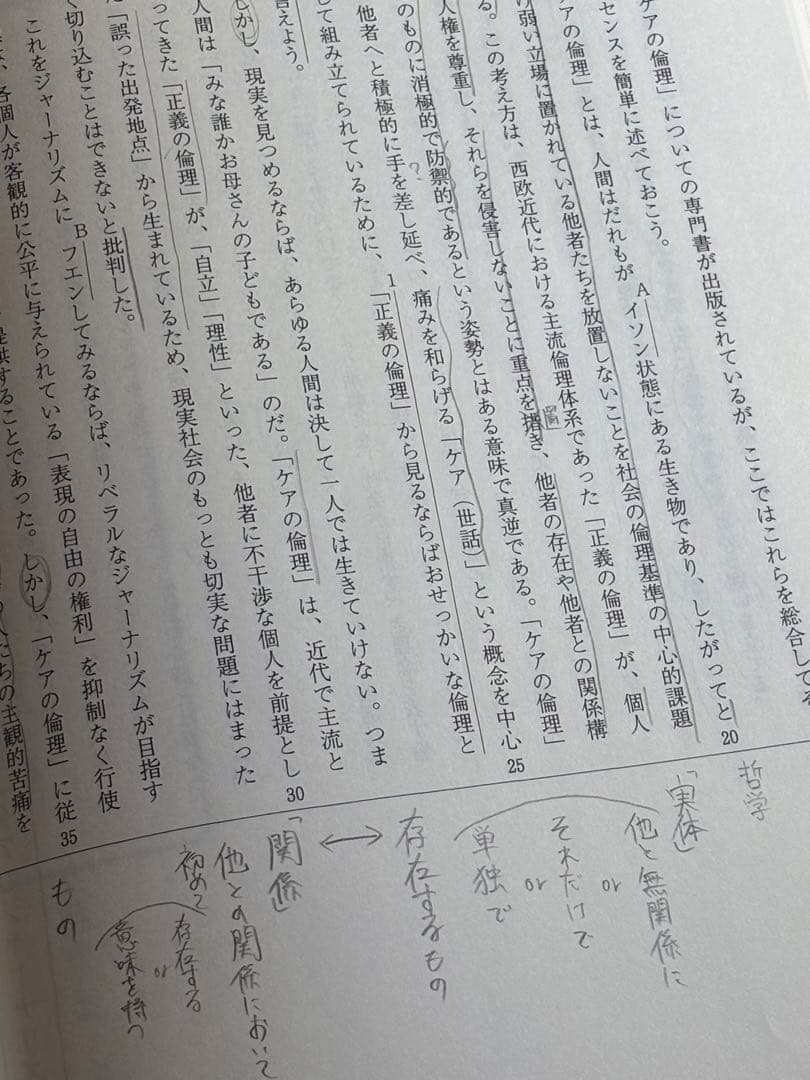 ケアの倫理」についての専門書が出版されているが、ここではこれらを総合してそ
センスを簡単に述べておこう。
アの倫理」とは、人間はだれもがイソン状態にある生き物であり、したがってと
A
20
け弱い立場に置かれている他者たちを放置しないことを社会の倫理基準の中心的課題
る。この考え方は、西欧近代における主流倫理体系であった「正義の倫理」が、個人
人権を尊重し、それらを侵害しないことに重点を措き、他者の存在や他者との関係構
置
のものに消極的で防禦的であるという姿勢とはある意味で真逆である。「ケアの倫理」
?
他者へと積極的に手を差し延べ、痛みを和らげる「ケア（世話）」という概念を中心
25
して組み立てられているために、「正義の倫理」から見るならばおせっかいな倫理と
1
言えよう。
しかし、現実を見つめるならば、あらゆる人間は決して一人では生きていけない。つま
人間は「みな誰かお母さんの子どもである」のだ。「ケアの倫理」は、近代で主流と
ってきた「正義の倫理」が、「自立」「理性」といった、他者に不干渉な個人を前提とし
30
た「誤った出発地点」から生まれているため、現実社会のもっとも切実な問題にはまった
く切り込むことはできないと批判した。
これをジャーナリズムにフエンしてみるならば、リベラルなジャーナリズムが目指す
B
は、各個人が客観的に公平に与えられている「表現の自由の権利」を抑制なく行使
提供することであった。しかし、「ケアの倫理」に従
35
たちの主観的苦痛を
哲学
「実体」
他と無関係に
or
それだけで
or
単独で
存在するもの
↔
「関係」
他との関係において
初めて
存在する
or
意味を持つ
もの